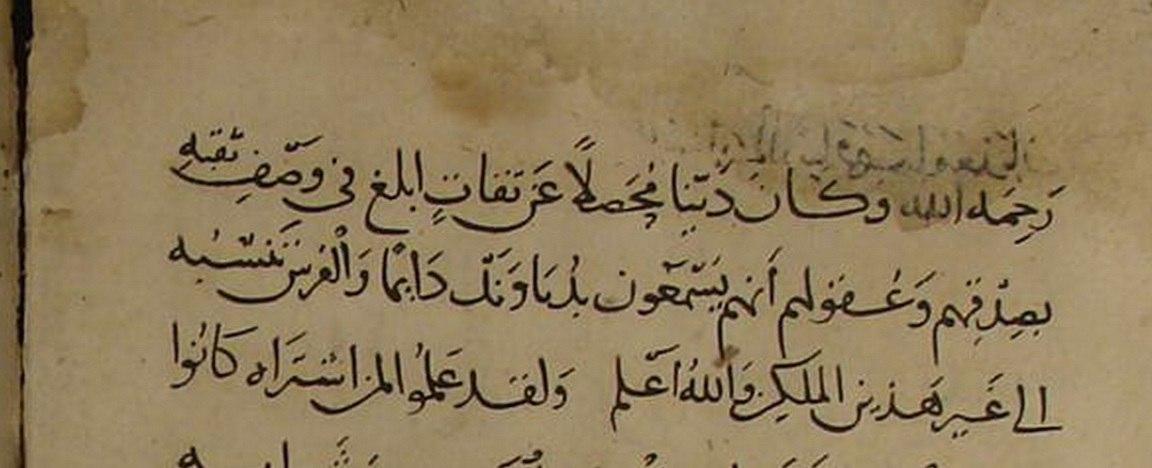 رَحِمَه الله وكان دَيّنا مُحَصلاً عَن ثقات ابلغ في وَصْف ثقته
بصِدْقهم وَعُـقولهم أنهم يَسْمَعون بدُنبَاوَنْد دَايمًا وَالْفُرس تَنْسُبُه
الى غَيْر هَذين الملكين وَاللهُ اَعْلم وَلقد عَلمُوا لمن اشتَرَاه كَانُوا